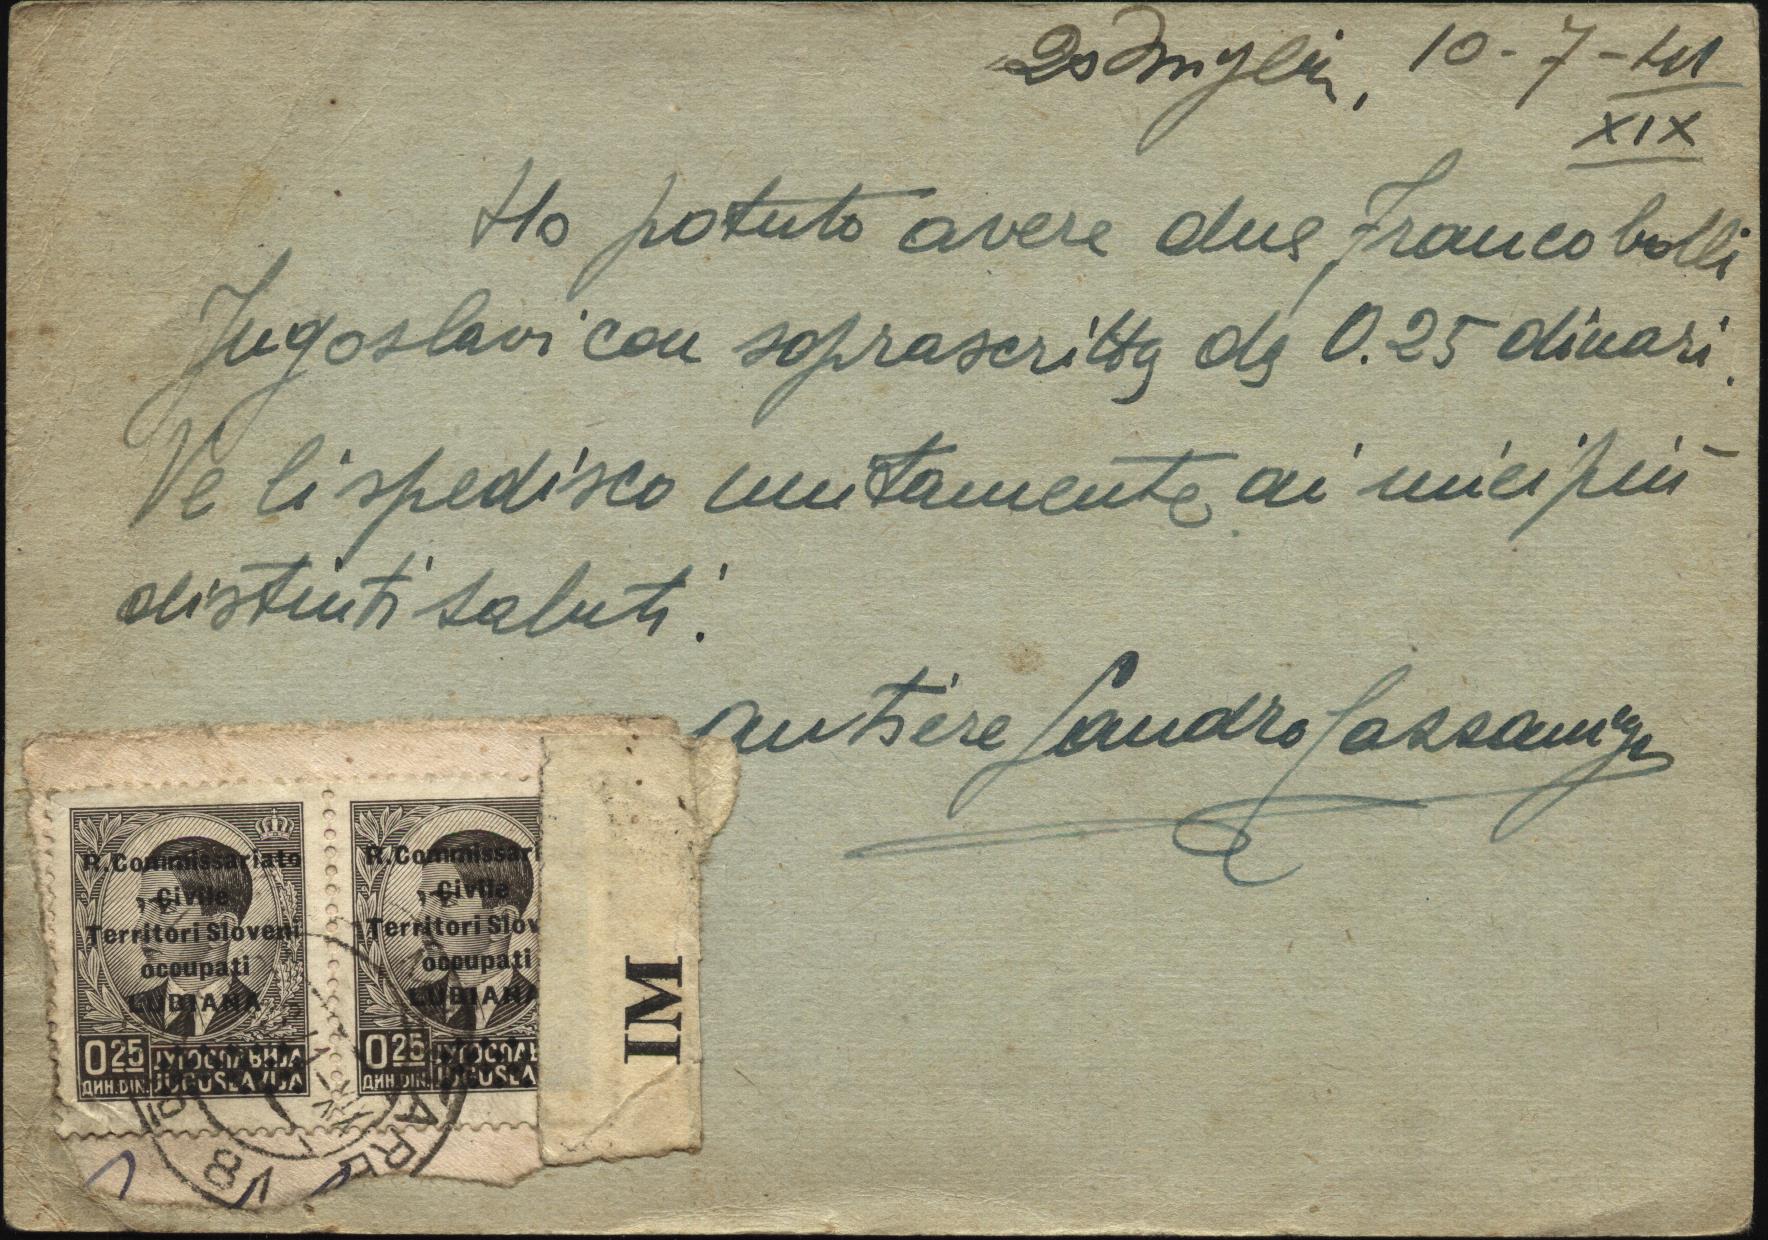 10-7-41
XIX
Ho potuto avere due francobolli
Jugoslavi con soprascritta da 0.25 dinari.
Ve li spedisco unitamente ai miei più
distinti saluti.
Sandro Cassaniga
R.Commissariato
Civile
Territori Sloveni
occupati
LUBIANA
0.25
ДИН.DIN.
ЈУГОСЛАВИЈА
JUGOSLAVIJA
R.Commissari
Civile
Territori Slov
occupati
LUBIANA
0.25
ДИН.DIN.
ЈУГОСЛАВ
JUGOSLA
IM